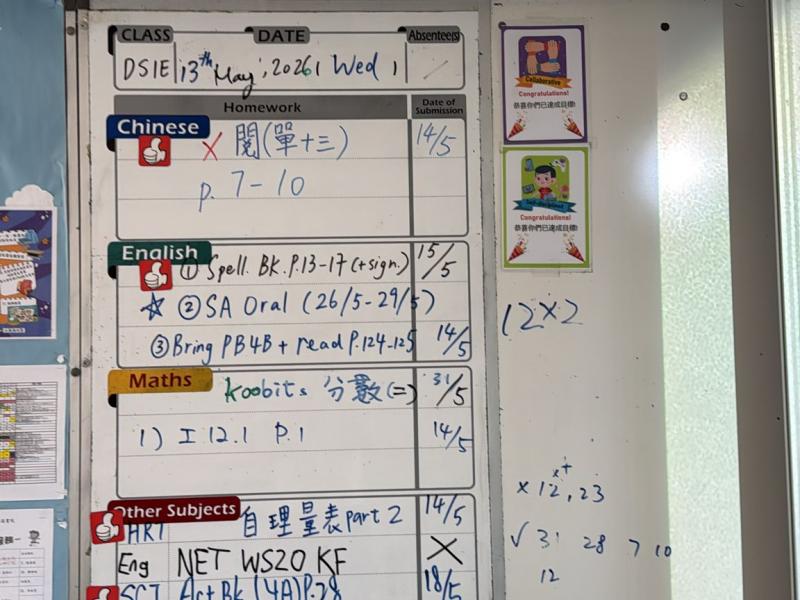 CLASS DATE Absentee(s)
DSIE 13th May, 2026, Wed
Homework Date of Submission
Chinese
X 閱(單十三) 14/5
p. 7-10
English
① Spell. BK. P.13-17 (+sign.) 15/5
☆ ② SA Oral (26/5-29/5)
③ Bring PB4B + read P.124-125 14/5
Maths
koobits 分數(二) 31/5
1) I 12.1 P.1 14/5
Other Subjects
ART 自理量表part 2 14/5
Eng NET WS20 KF X
SCI Act BK (4A) P.28 18/5
Collaborative
Congratulations!
恭喜你們已達成目標!
Self-disciplined
Congratulations!
恭喜你們已達成目標!
12×2
× 12, 23
√ 31 28 7 10
12